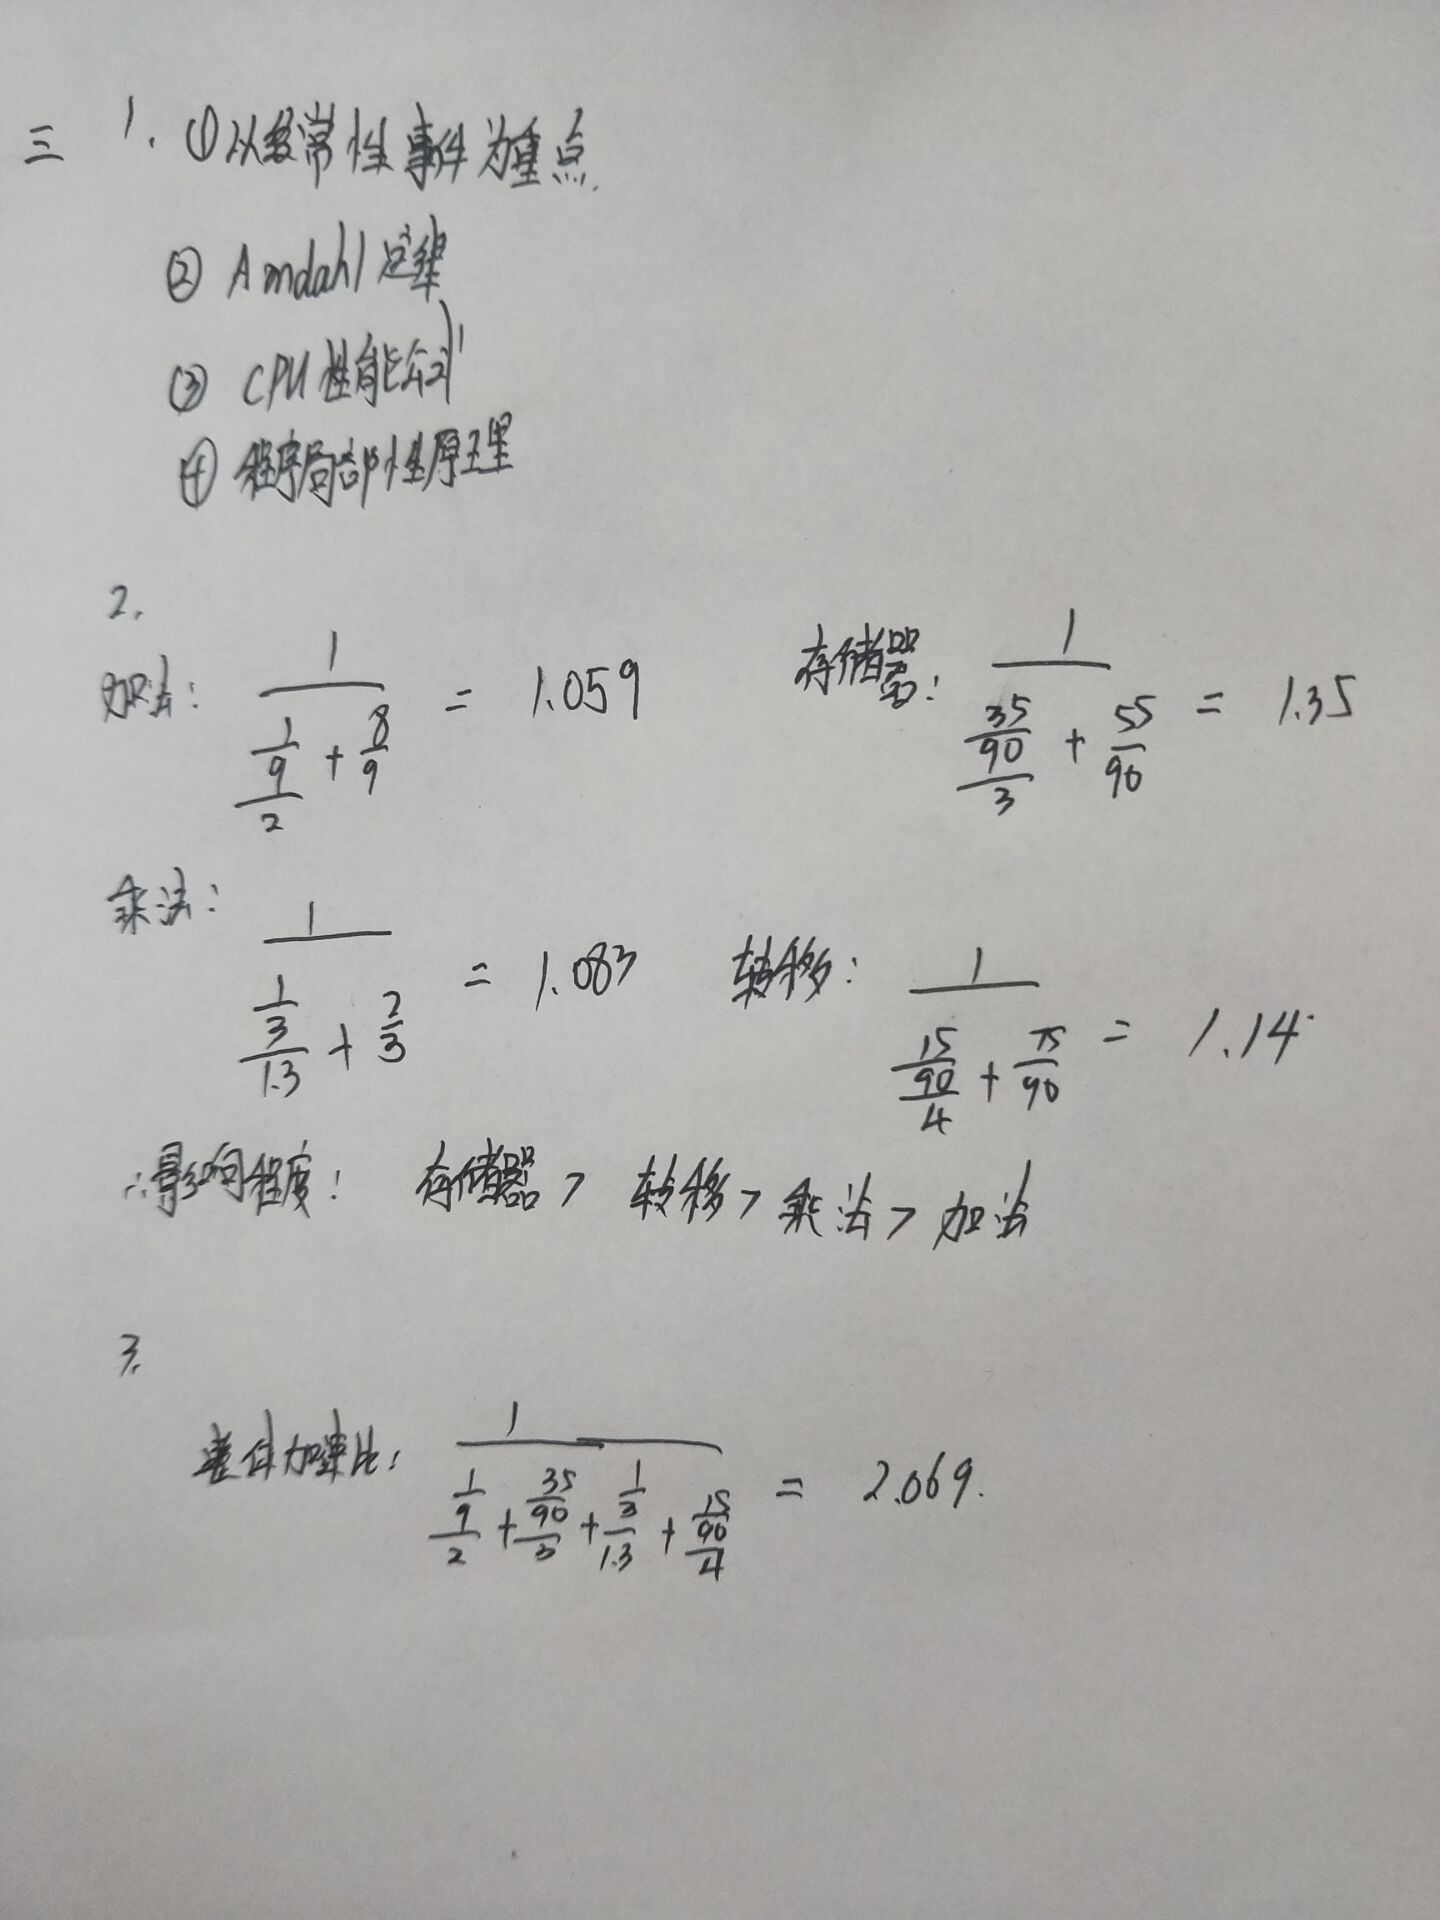 三 1. ①以经常性事件为重点.
② Amdahl定律
③ CPU性能公式
④ 程序局部性原理
2.
加法: 1/((1/9)/2 + 8/9) = 1.059 存储器: 1/((35/90)/3 + 55/90) = 1.35
乘法: 1/((1/3)/1.3 + 2/3) = 1.083 转移: 1/((15/90)/4 + 75/90) = 1.14
∴影响程度: 存储器 > 转移 > 乘法 > 加法
3.
整体加速比: 1/((1/9)/2 + (35/90)/3 + (1/3)/1.3 + (15/90)/4) = 2.069.